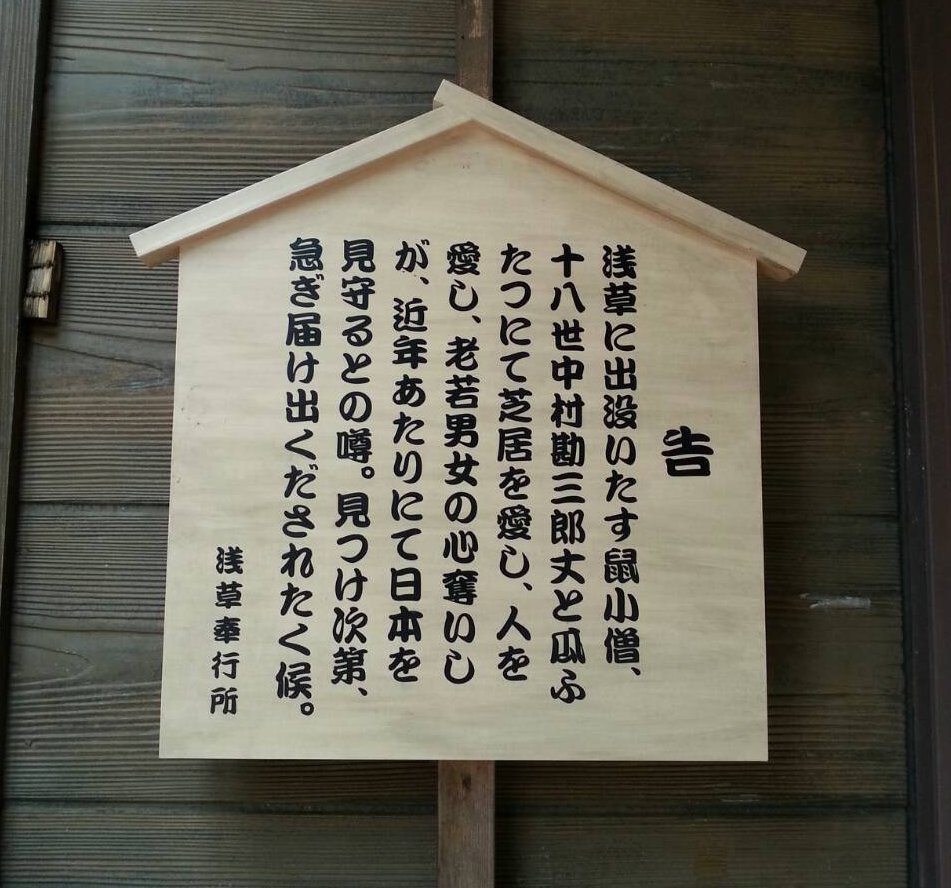 告
浅草に出没いたす鼠小僧、
十八世中村勘三郎丈と瓜ふ
たつにて芝居を愛し、人を
愛し、老若男女の心奪いし
が、近年あたりにて日本を
見守るとの噂。見つけ次第、
急ぎ届け出くだされたく候。
浅草奉行所